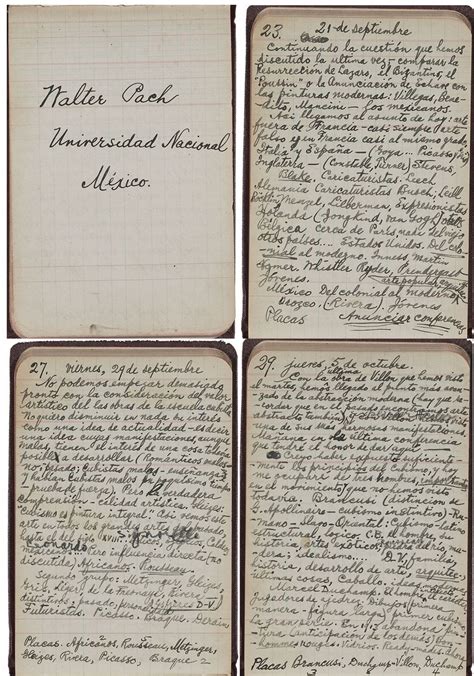 Walter Pach
Universidad Nacional
México.
23. 21 de septiembre
Continuando la cuestión que hemos
discutido la ultima vez - comparar la
Resurrección de Lazaro, el Bizantino, el
"Poussin" o la Anunciación de Echave con
las pinturas modernas: Villegas, Bene-
dito, Mancini - Los mexicanos.
Asi llegamos al asunto de hoy: arte
fuera de Francia - casi siempre (arte
falso es en Francia casi al mismo grado,
Italia y España - (Goya... Picasso)
Inglaterra - (Constable, Turner) Stevens,
Blake. Caricaturistas. Leech
Alemania Caricaturistas Busch, Leibl
Böcklin, Menzel, Liberman, Expresionistas
Holanda (Jongkind, van Gogh)
Bélgica cerca de Paris nada del viejo
otros países.... Estados Unidos. Del colo-
nial al moderno. Inness, Martin
Homer, Whistler, Ryder, Prendergast
Jóvenes. arte popular
México Del colonial al moderno
Orozco. (Rivera) Jóvenes
Placas Anunciar conferencia
27. Viernes, 29 de septiembre
No podemos empezar demasiado
pronto con la consideración del valor
artístico de las obras de la escuela cubista
No quiero disminuir en nada su interés
como una idea de actualidad - es decir
una idea cuyas manifestaciones, aunque
malas, tienen el interés de una cosa todavía
posible a desarollar. (Románticos malos -
no; pasado; Cubistas malos -
Y habian Cubistas malos en
prueba de fuerza). Pero la verdadera
comprensión: calidad artística. Gleizes:
"cubismo es pintura integral": Asi vamos este
arte en todos los grandes artes
hasta el del siglo XVIII
mexicanos... Pero influencia directa (no
discutida) Africanos. Rousseau.
Segundo grupo: Metzinger, Gleizes
Gris, Léger, de la Fresnaye, Rivera,
distintos: pasado, personalidad D-V
Futuristas. Picasso. Braque. Derain,
Placas. Africanos, Rousseau, Metzinger,
Gleizes, Rivera, Picasso, Braque 2
29. jueves, 5 de octubre.
Con la obra de Villon, que hemos visto
el martes, hemos llegado al punto mas avan-
zado de la abstracción moderna (hay que re-
cordar que en el pasado
abstracto también)
una de sus mas hermosas manifestaciones
Mañana en la ultima conferencia
que tendré el honor de
Creo haber expuesto suficiente-
mente los principios del Cubismo, y hoy
me guaparé de tres hombres, importantes
en el movimiento y que no hemos visto
todavia. Brancusi (distinción de
G. Apollinaire - cubismo instintivo) - Ru-
mano - Slavo - Oriental: Cubismo - latino
estructural, logico. C.B. el hombre, su
historia, artes exóticos: piedra del rio, ma-
dera; idealismo.... D-V, familia,
historia, desarrollo de arte,
ultimas cosas, Caballo.
Marcel Duchamp. El hombre.
jugadores de ajedrez. Dibujos, primera
manera - figura tarde, primer cubismo
La gran serie.
tura (anticipación de los demás)
hombres nobles. Vidrios. Ready-mades. Ahora.
Placas Brancusi, Duchamp-Villon, Duchamp
3 4